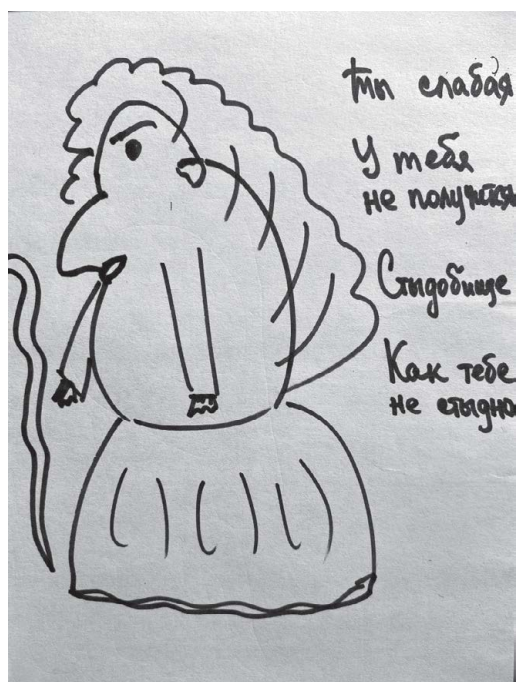 ты слабая
У тебя
не получится
Стыдобище
Как тебе
не стыдно